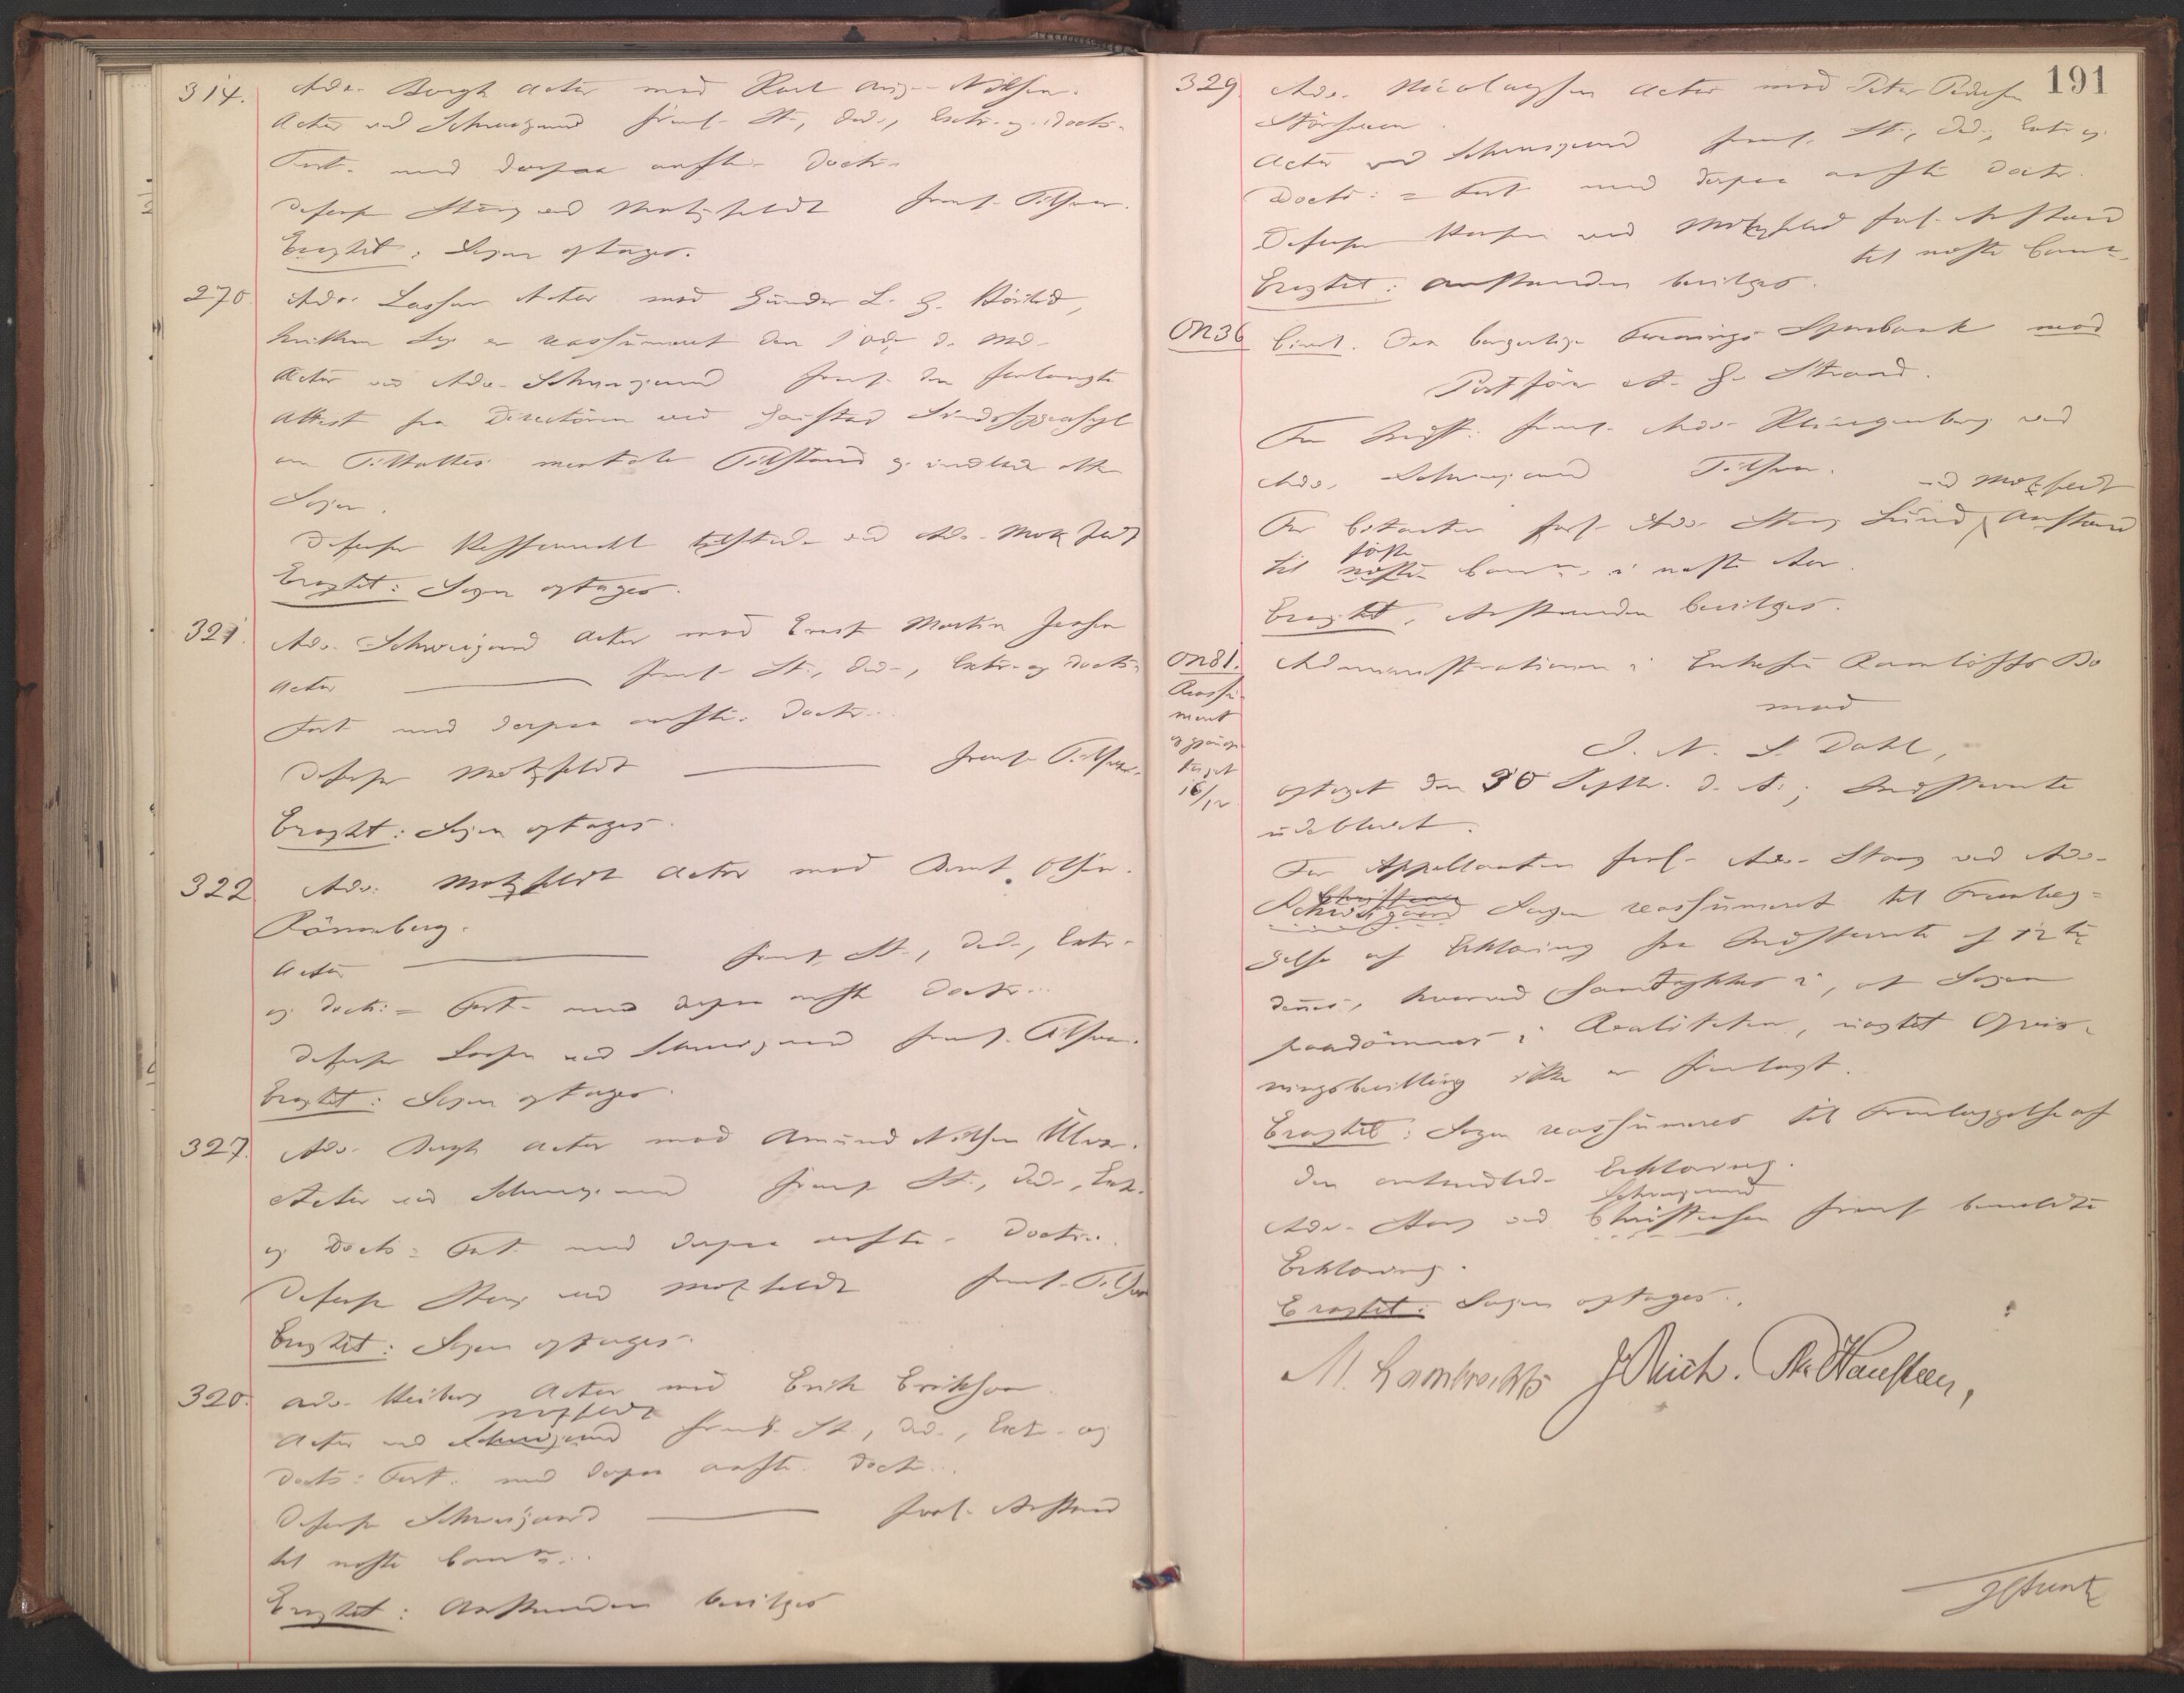 314. Adv. Bergh Actor mod Karl Aug. Nilsen.
Actor ved Schweigaard freml. St., Ded., Extr. og Docts.
Fort. med derpaa anfte. Doctr.
Defensor Steng ved Motzfeldt freml. Tilsvar.
Eragtet: Sagen optages.
270. Adv. Lassen Actor mod Gunder L. G.
hvilken Sag er reassumeret den 1 d. Md.
Actor ved Adv. Schweigaard freml. den forlangte
Attest fra Directören ved Gaustad Sindssygeasyl
om Tiltaltes mentale Tilstand og indlod atter
Sagen.
Defensor tilstede ved Adv. Motzfeldt
Eragtet: Sagen optages.
321. Adv. Schweigaard Actor mod Ernst Martin Jensen
Actor freml. St., Ded., Extr. og Docts.
Fort. med derpaa anfte. Doctr.
Defensor Motzfeldt freml. Tilsvar.
Eragtet: Sagen optages.
322 Adv. Motzfeldt Actor mod Bernt Olsen
Rönneberg.
Actor freml. St., Ded., Extr.
og Docts: Fort. med derpaa anfte Doctr.
Defensor Lassen ved Schweigaard freml. Tilsvar.
Eragtet: Sagen optages.
327. Adv. Bergh Actor mod Amund Nilsen
Actor ved Schweigaard freml. St., Ded., Extr.
og Docts: Fort. med derpaa anfte. Doctr.
Defensor Steng ved Motzfeldt freml. Tilsvar
Eragtet: Sagen optages.
320. Adv. Heiberg Actor mod Erik Erikson
Motzfeldt
Actor ved Schweigaard freml. St., Ded., Extr. og
Docts: Fort. med derpaa anfte. Doctr.
Defensor Schweigaard forl. Anstand
til næste
Eragtet: Anstanden bevilges
191
329. Adv. Nicolaysen Actor mod Peter Pedersen
Actor ved Schweigaard freml. St., Ded., Extr og
Docts: Fort. med derpaa anfte Doctr.
Defensor ved Motzfeldt forl. Anstand
til næste
Eragtet: Anstanden bevilges.
ON 36 Civil. Den borgerlige Forenings Sparebank mod
A. G. Strand.
For Indst. freml. Adv. Klingenberg ved
Adv. Schweigaard Tilsvar.
ved Motzfeldt
For Citanten forl. Adv. Steng Lund, Anstand
förste
til næste i næste Aar.
Eragtet, Anstanden bevilges.
ON 81. Administrationen i Enkefru Bo
Reassu-
meret
mod
og paany op-
J. N. S. Dahl,
taget
16/12
optaget den 30 Septbr. d. A.; Indstevnte
udeblevet.
For Appellanten forl. Adv. Steng ved Adv.
Christensen
Schweigaard Sagen reassumeret til Fremlæg-
gelse af Erklæring fra Indstevnte af 12te
dennes, hvorved samtykkes i, at Sagen
paadömmes i Realiteten, uagtet Opreis-
ningsbevilling ikke er fremlagt.
Eragtet: Sagen reassumeres til Fremlæggelse af
den omhandlede Erklæring.
Schweigaard
Adv. Steng ved Christensen freml. bemeldte
Erklæring.
Eragtet: Sagen optages.
M. Lambrechts